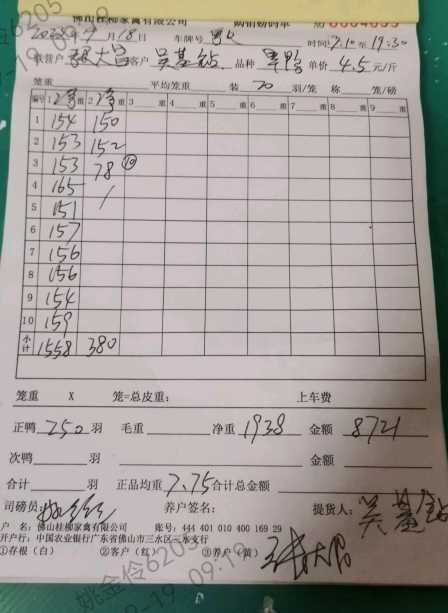 佛山桂柳家禽有限公司 购销磅码单 №0004659
2023年9月18日 车牌号 时间:7:10至19:30
联营户 张大昌 客户 吴基钻 品种 单价 4.5元/斤
笼重 平均笼重 装 20 羽/笼 称 笼/磅
编号 1 重 2 重 3 重 4 重 5 重 6 重 7 重 8 重 9 重
1 154 150
2 153 152
3 153 78 ⑩
4 165 /
5 151
6 157
7 156
8 156
9 154
10 159
小计 1558 380
笼重 X 笼=总皮重: 上车费
正鸭 250 羽 毛重 净重 1938 金额 8721
次鸭 羽 金额
合计 羽 正品均重 7.75 合计总金额
司磅员: 养户签名: 提货人: 吴基钻
户 名: 佛山桂柳家禽有限公司 账号: 444 401 010 400 169 29
开户行: 中国农业银行广东省佛山市三水区三水支行
①存根(白) ②客户(红) ③养户(黄) 张大昌
姚金伶6205
-19 09:19